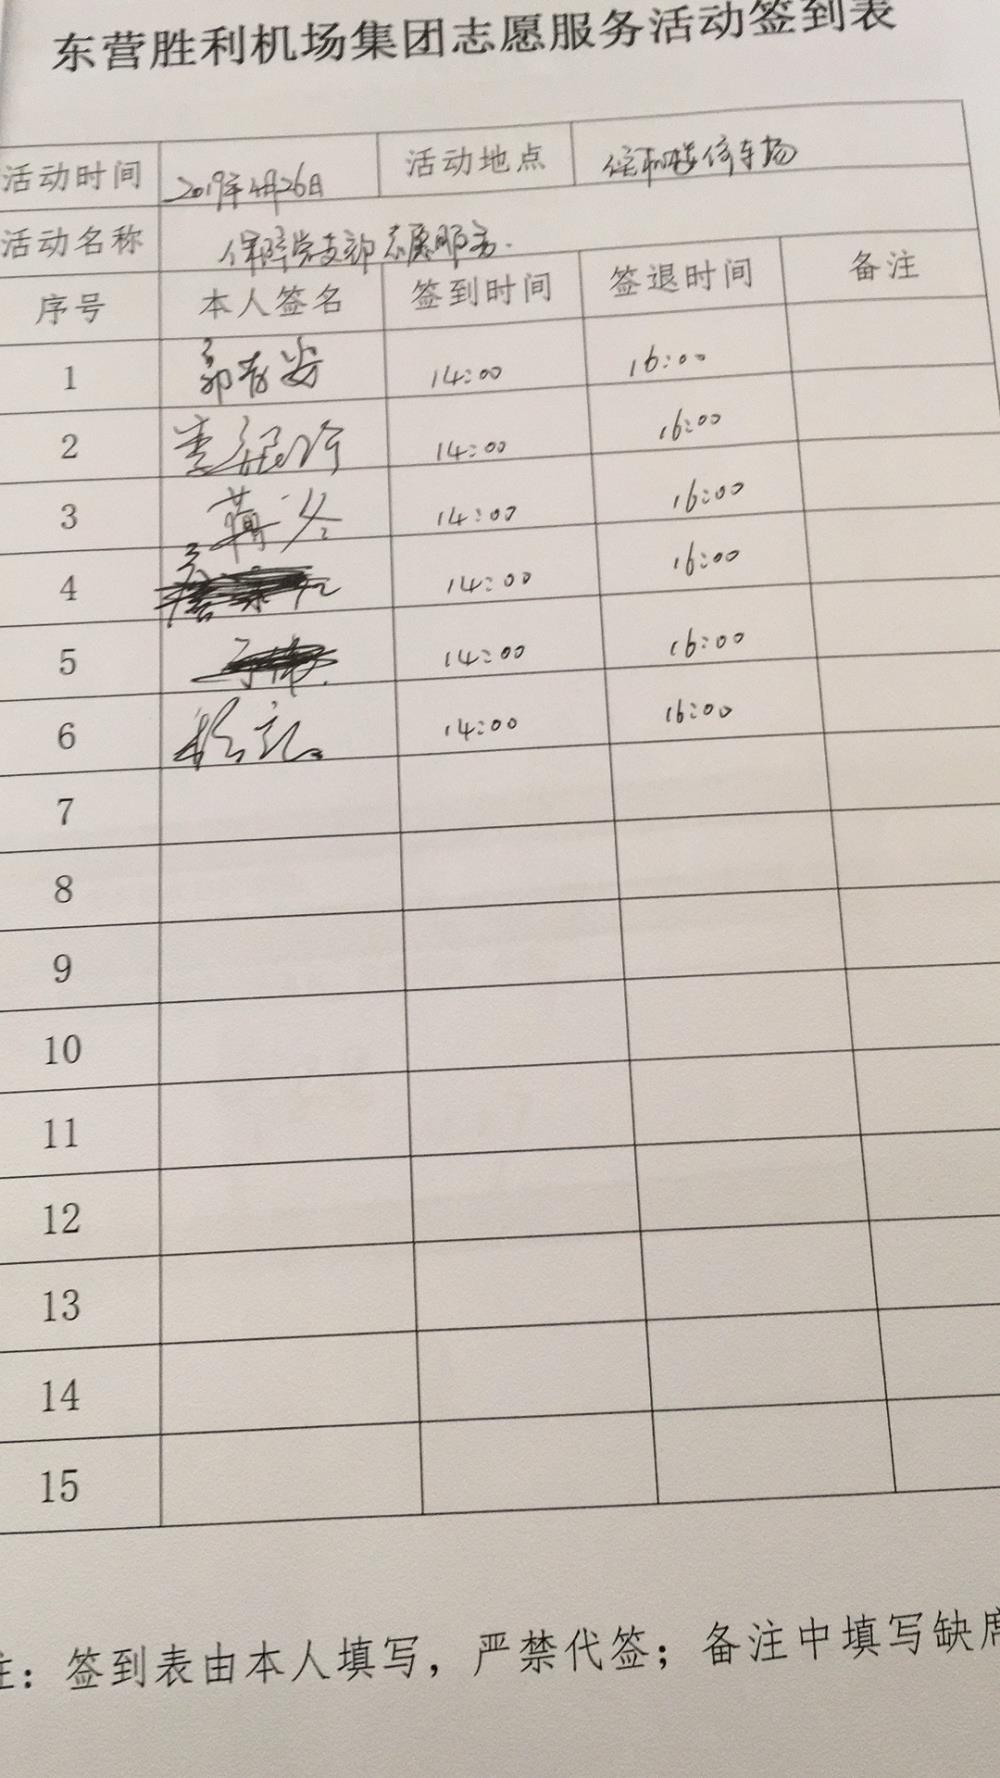 东营胜利机场集团志愿服务活动签到表
活动时间 2019年4月26日 活动地点 停车场
活动名称 保障党支部志愿服务.
序号 本人签名 签到时间 签退时间 备注
1 14:00 16:00
2 14:00 16:00
3 14:00 16:00
4 14:00 16:00
5 14:00 16:00
6 14:00 16:00
7
8
9
10
11
12
13
14
15
注：签到表由本人填写，严禁代签；备注中填写缺席